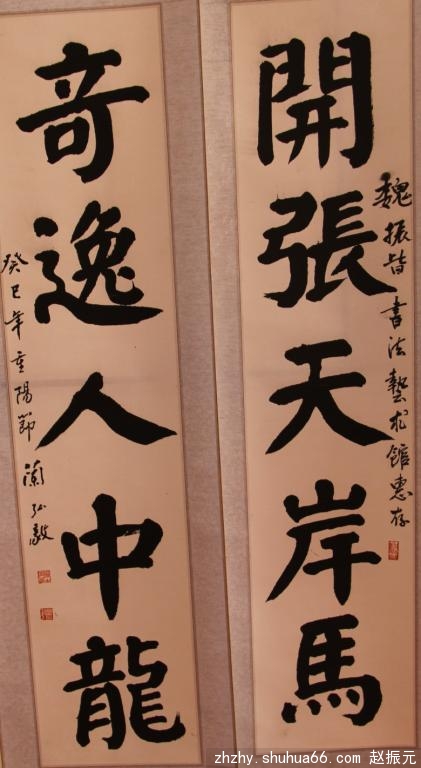 開張天岸馬
魏振皆書法藝术館惠存
奇逸人中龍
癸巳年重陽節 蘭弘毅
zhzhy.shuhua66.com 赵振元